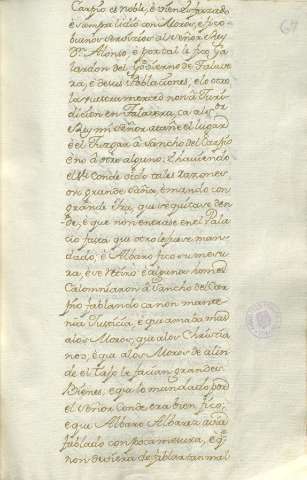 Carpio es noble, è bien esforzado
è siempre lidió con Moros, è fizo
buenos servicios al señor Rey
Dn. Alonso, è por tal le fizo ga
lardon del Gobierno de Talave
ra, è de sus Poblaciones, è lo otro
la vuestra merced non à Juri
dicion en Talavera, ca al
Rey mi señor atañe el lugar
è el Juzgar à Sancho del Carpio
è no à otro alguno. E haviendo
el Conde oido tales razones
on grande saña, è mandó con
grande Ira, que se quitase den
de, è que non entrase en el Pala
cio fasta que otro le fuese man
dado, è Albaro fizo su mesura
ra, è se retiró è algunos homes
Calomniaron à Sancho del Car
pio fablando ca non mante
nia Justicia, è que amaba mas
a los Moros, que a los Christia
nos, è que a los Moros de alin
de el Tajo le facian grandes
Bienes, è que lo mandado por
el señor Conde era bien fizo,
è que Albaro Albarez avia
fablado con poca mesura, è q
non deviera de fablar tan mal